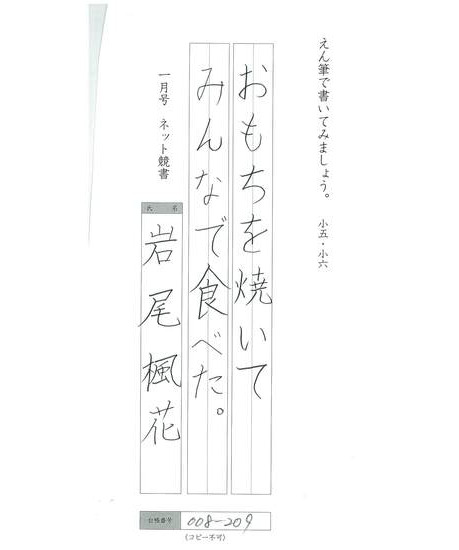 えん筆で書いてみましょう。 小五・小六
おもちを焼いて
みんなで食べた。
一月号 ネット競書
氏名
岩尾楓花
台帳番号 008-209
(コピー不可)